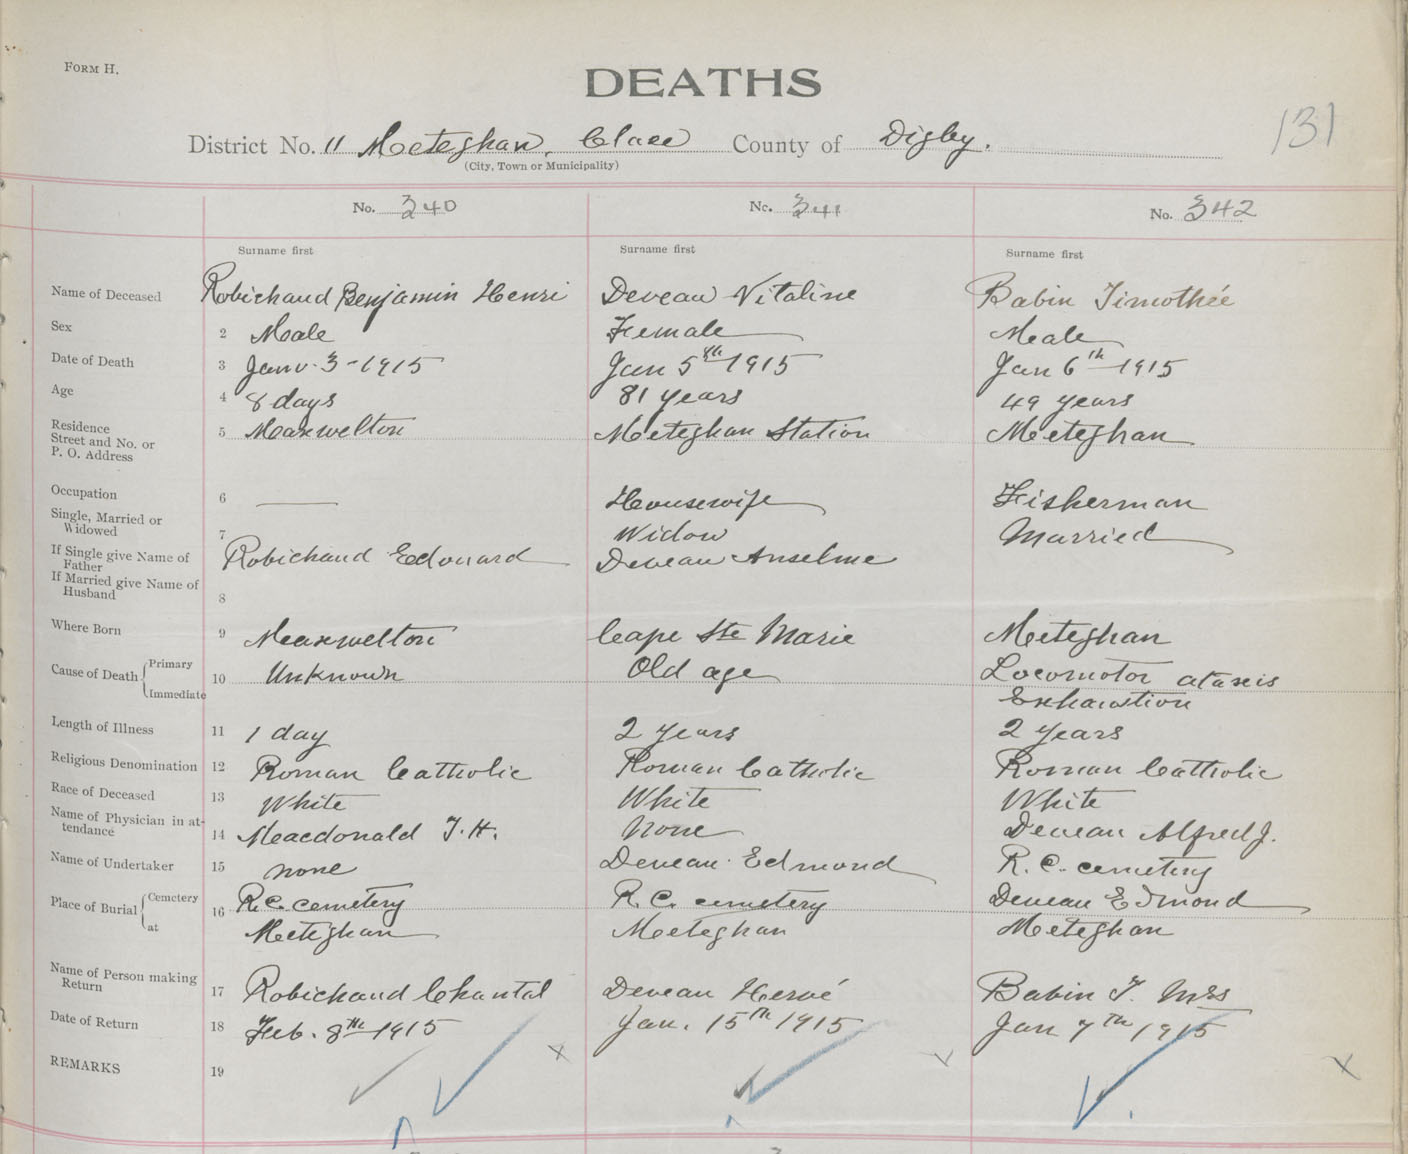 FORM H.
DEATHS
131
District No. 11 Meteghan, Clare County of Digby.
(City, Town or Municipality)
No. 340 No. 341 No. 342
Surname first Surname first Surname first
Name of Deceased Robichaud Benjamin Henri Deveau Vitaline Babin Timothée
Sex 2 Male Female Male
Date of Death 3 Janv. 3 - 1915 Jan 5th 1915 Jan 6th 1915
Age 4 8 days 81 years 49 years
Residence
Street and No. or
P. O. Address 5 Maxwelton Meteghan Station Meteghan
Occupation 6 Housewife Fisherman
Single, Married or
Widowed 7 Widow Married
If Single give Name of
Father Robichaud Edouard Deveau Anselme
If Married give Name of
Husband 8
Where Born 9 Maxwelton Cape Ste Marie Meteghan
Cause of Death Primary
Immediate 10 Unknown Old age Locomotor ataxis
Exhaustion
Length of Illness 11 1 day 2 years 2 years
Religious Denomination 12 Roman Catholic Roman Catholic Roman Catholic
Race of Deceased 13 White White White
Name of Physician in at-
tendance 14 Macdonald T. H. None Deveau Alfred J.
Name of Undertaker 15 none Deveau Edmond R. C. cemetery
Place of Burial Cemetery
at 16 R.C. cemetery R. C. cemetery Deveau Edmond
Meteghan Meteghan Meteghan
Name of Person making
Return 17 Robichaud Chantal Deveau Hervé Babin T. Mrs
Date of Return 18 Feb. 8th 1915 Jan. 15th 1915 Jan 7th 1915
REMARKS 19